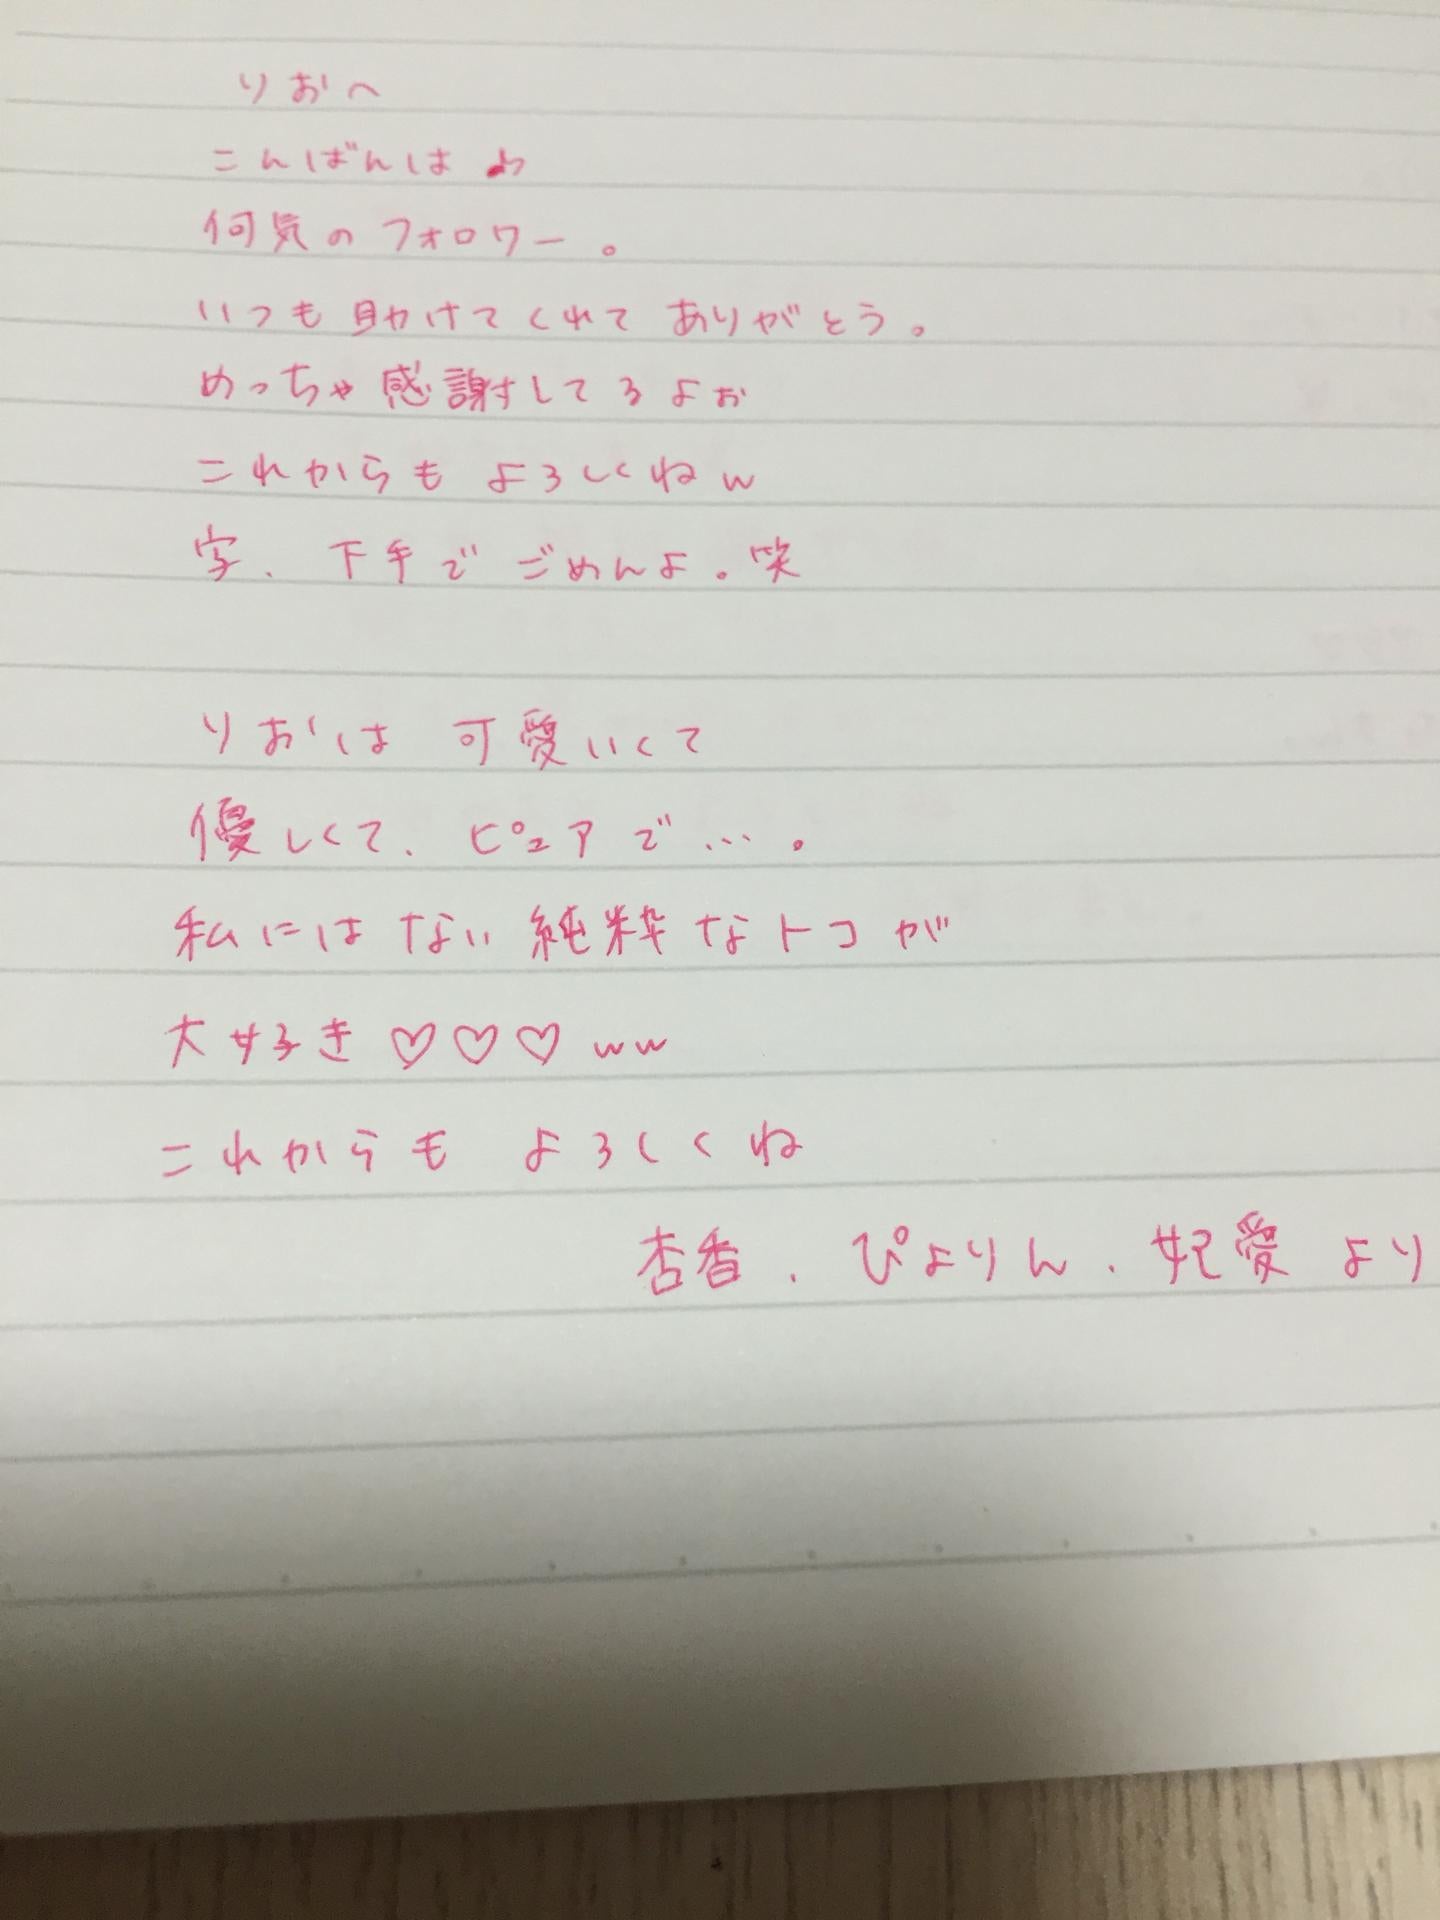 りおへ
こんばんは♪
何気のフォロワー。
いつも助けてくれてありがとう。
めっちゃ感謝してるよぉ
これからも よろしくねw
字、下手でごめんよ。笑
りおは 可愛いくて
優しくて、ピュアで…。
私にはない純粋なトコが
大好き♡♡♡ww
これからも よろしくね
杏香、ぴよりん、妃愛より